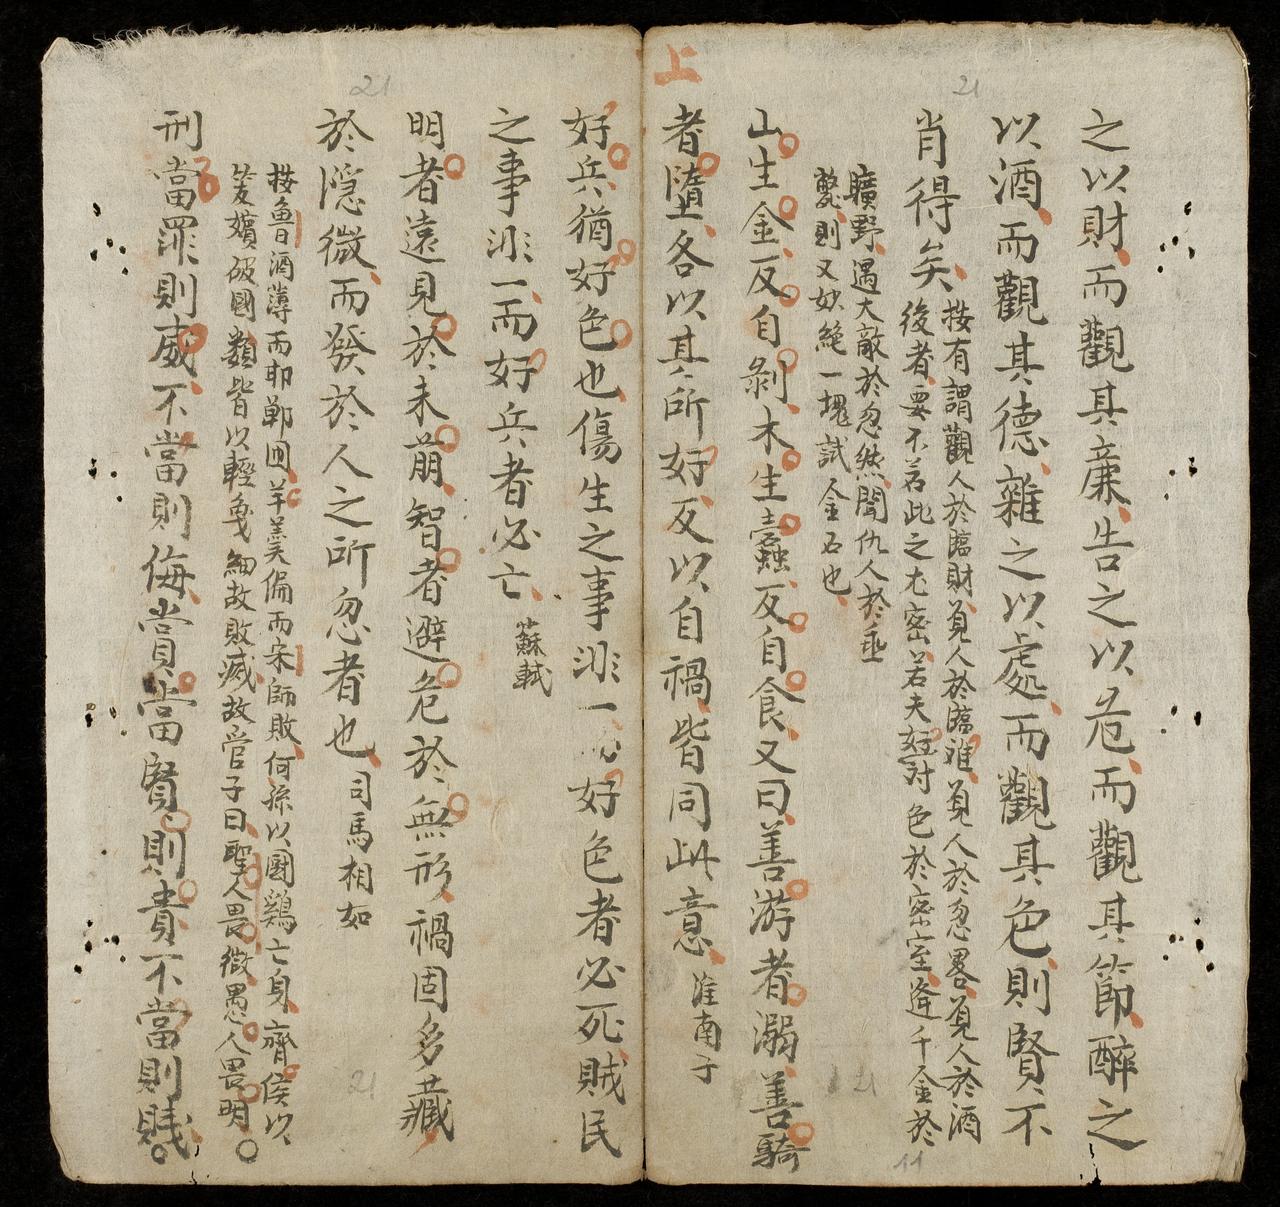 上
21
21
之以財而觀其廉告之以危而觀其節醉之
以酒而觀其德雜之以處而觀其色則賢不
肖得矣
按有謂觀人於臨財觅人於臨难觅人於忽畧觅人於酒
後者要不若此之尤密若夫好対色於密室逄千金於
曠野遇大敵於忽然聞仇人於垂
斃則又妙絶一塊試金石也
山生金反自剝木生蠹反自食又曰善游者溺善騎
者墮各以其所好反以自禍皆同此意 淮南子
好兵猶好色也傷生之事非一而好色者必死賊民
之事非一而好兵者必亡 蘇軾
明者遠見於未萠智者避危於無形禍固多藏
於隠微而發於人之所忽者也 司馬相如
按魯酒薄而邯鄲囲羊羹偏而宋師敗何孫以國鷄亡身齊侯以
笑嬪破國類皆以輕
細故敗滅故管子曰聖人畏微愚人畏明
刑當罪則威不當則侮賞當賢則貴不當則賤
21
21
11